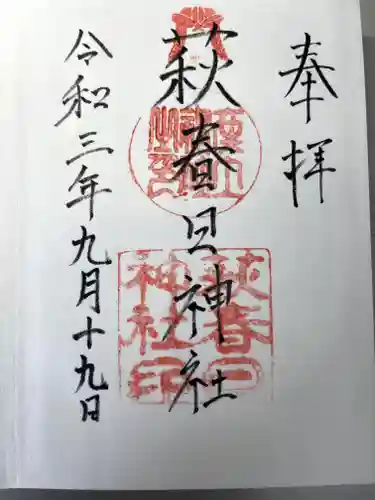 奉拝
萩春日神社
令和三年九月十九日
萩春日
神社印